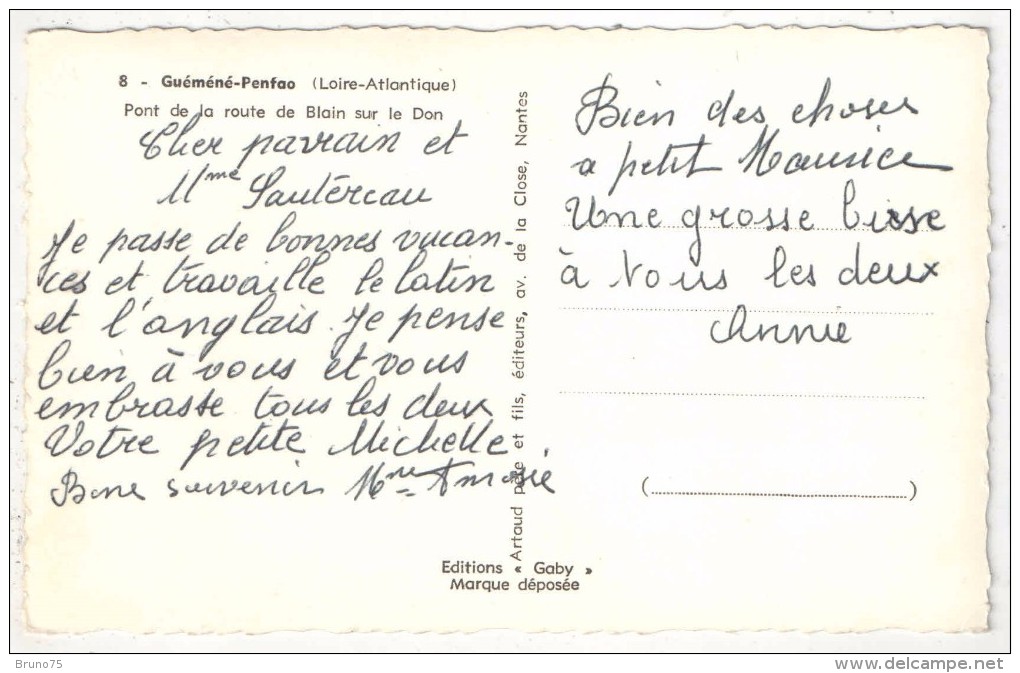 8 - Guéméné-Penfao (Loire-Atlantique)
Pont de la route de Blain sur le Don
Cher parrain et
Mme Sautéreau
Je passe de bonnes vacan-
ces et travaille le latin
et l'anglais. Je pense
bien à vous et vous
embrasse tous les deux
Votre petite Michelle
Bons souvenir Mme
Bien des choses
a petit Maurice
Une grosse bise
à vous les deux
Annie
Artaud père et fils, éditeurs, av. de la Close, Nantes
Editions « Gaby »
Marque déposée
Bruno75
www.delcampe.net